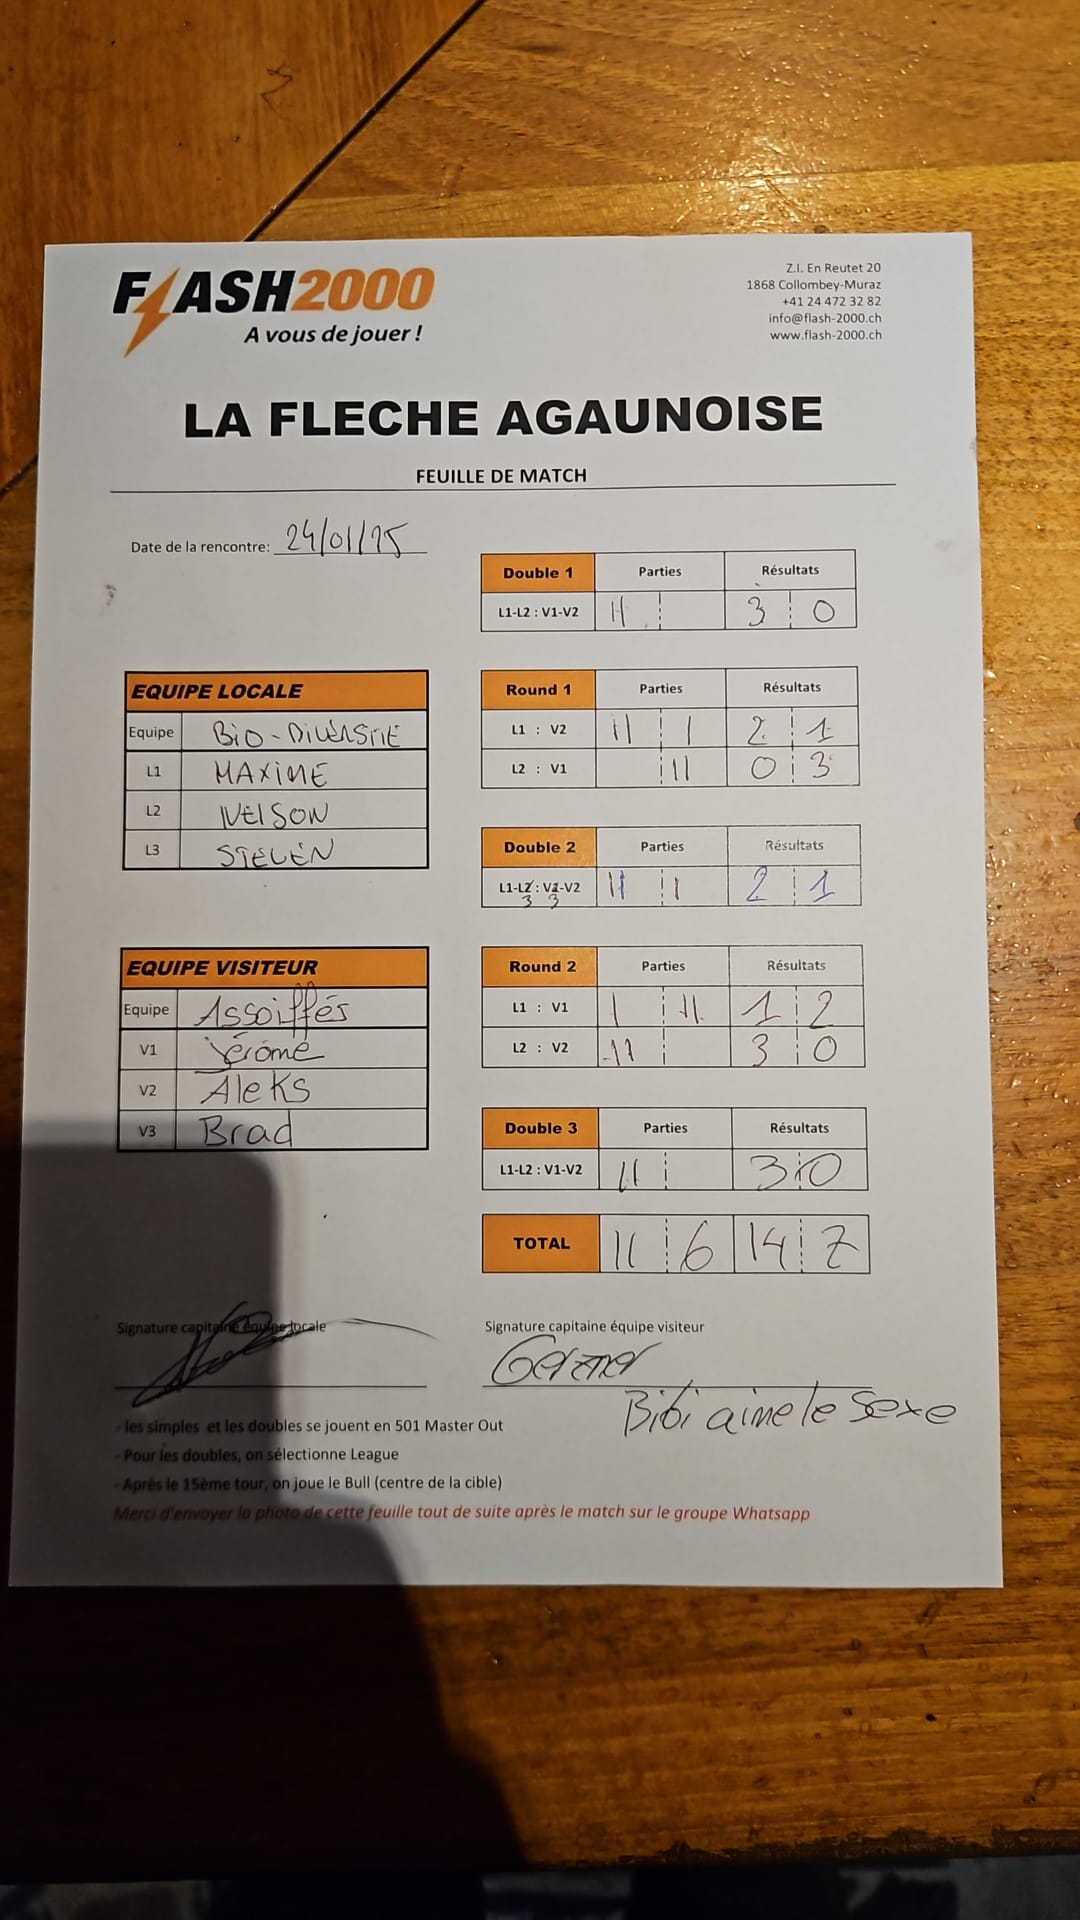 FLASH2000
A vous de jouer !
Z.I. En Reutet 20
1868 Collombey-Muraz
+41 24 472 32 82
info@flash-2000.ch
www.flash-2000.ch
LA FLECHE AGAUNOISE
FEUILLE DE MATCH
Date de la rencontre: 24/01/25
Double 1 Parties Résultats
L1-L2 : V1-V2 II 3 0
EQUIPE LOCALE
Equipe BiO-DIVERSITE
L1 MAXIME
L2 NELSON
L3 STEVEN
Round 1 Parties Résultats
L1 : V2 II I 2 1
L2 : V1 II 0 3
Double 2 Parties Résultats
L1-L2 : V1-V2 II I 2 1
3 3
EQUIPE VISITEUR
Equipe Assoiffés
V1 Jérôme
V2 Aleks
V3 Brad
Round 2 Parties Résultats
L1 : V1 I II 1 2
L2 : V2 II 3 0
Double 3 Parties Résultats
L1-L2 : V1-V2 II 3 0
TOTAL 11 6 14 7
Signature capitaine équipe locale
Signature capitaine équipe visiteur
Bibi aime le sexe
- les simples et les doubles se jouent en 501 Master Out
- Pour les doubles, on sélectionne League
- Après le 15ème tour, on joue le Bull (centre de la cible)
Merci d'envoyer la photo de cette feuille tout de suite après le match sur le groupe Whatsapp